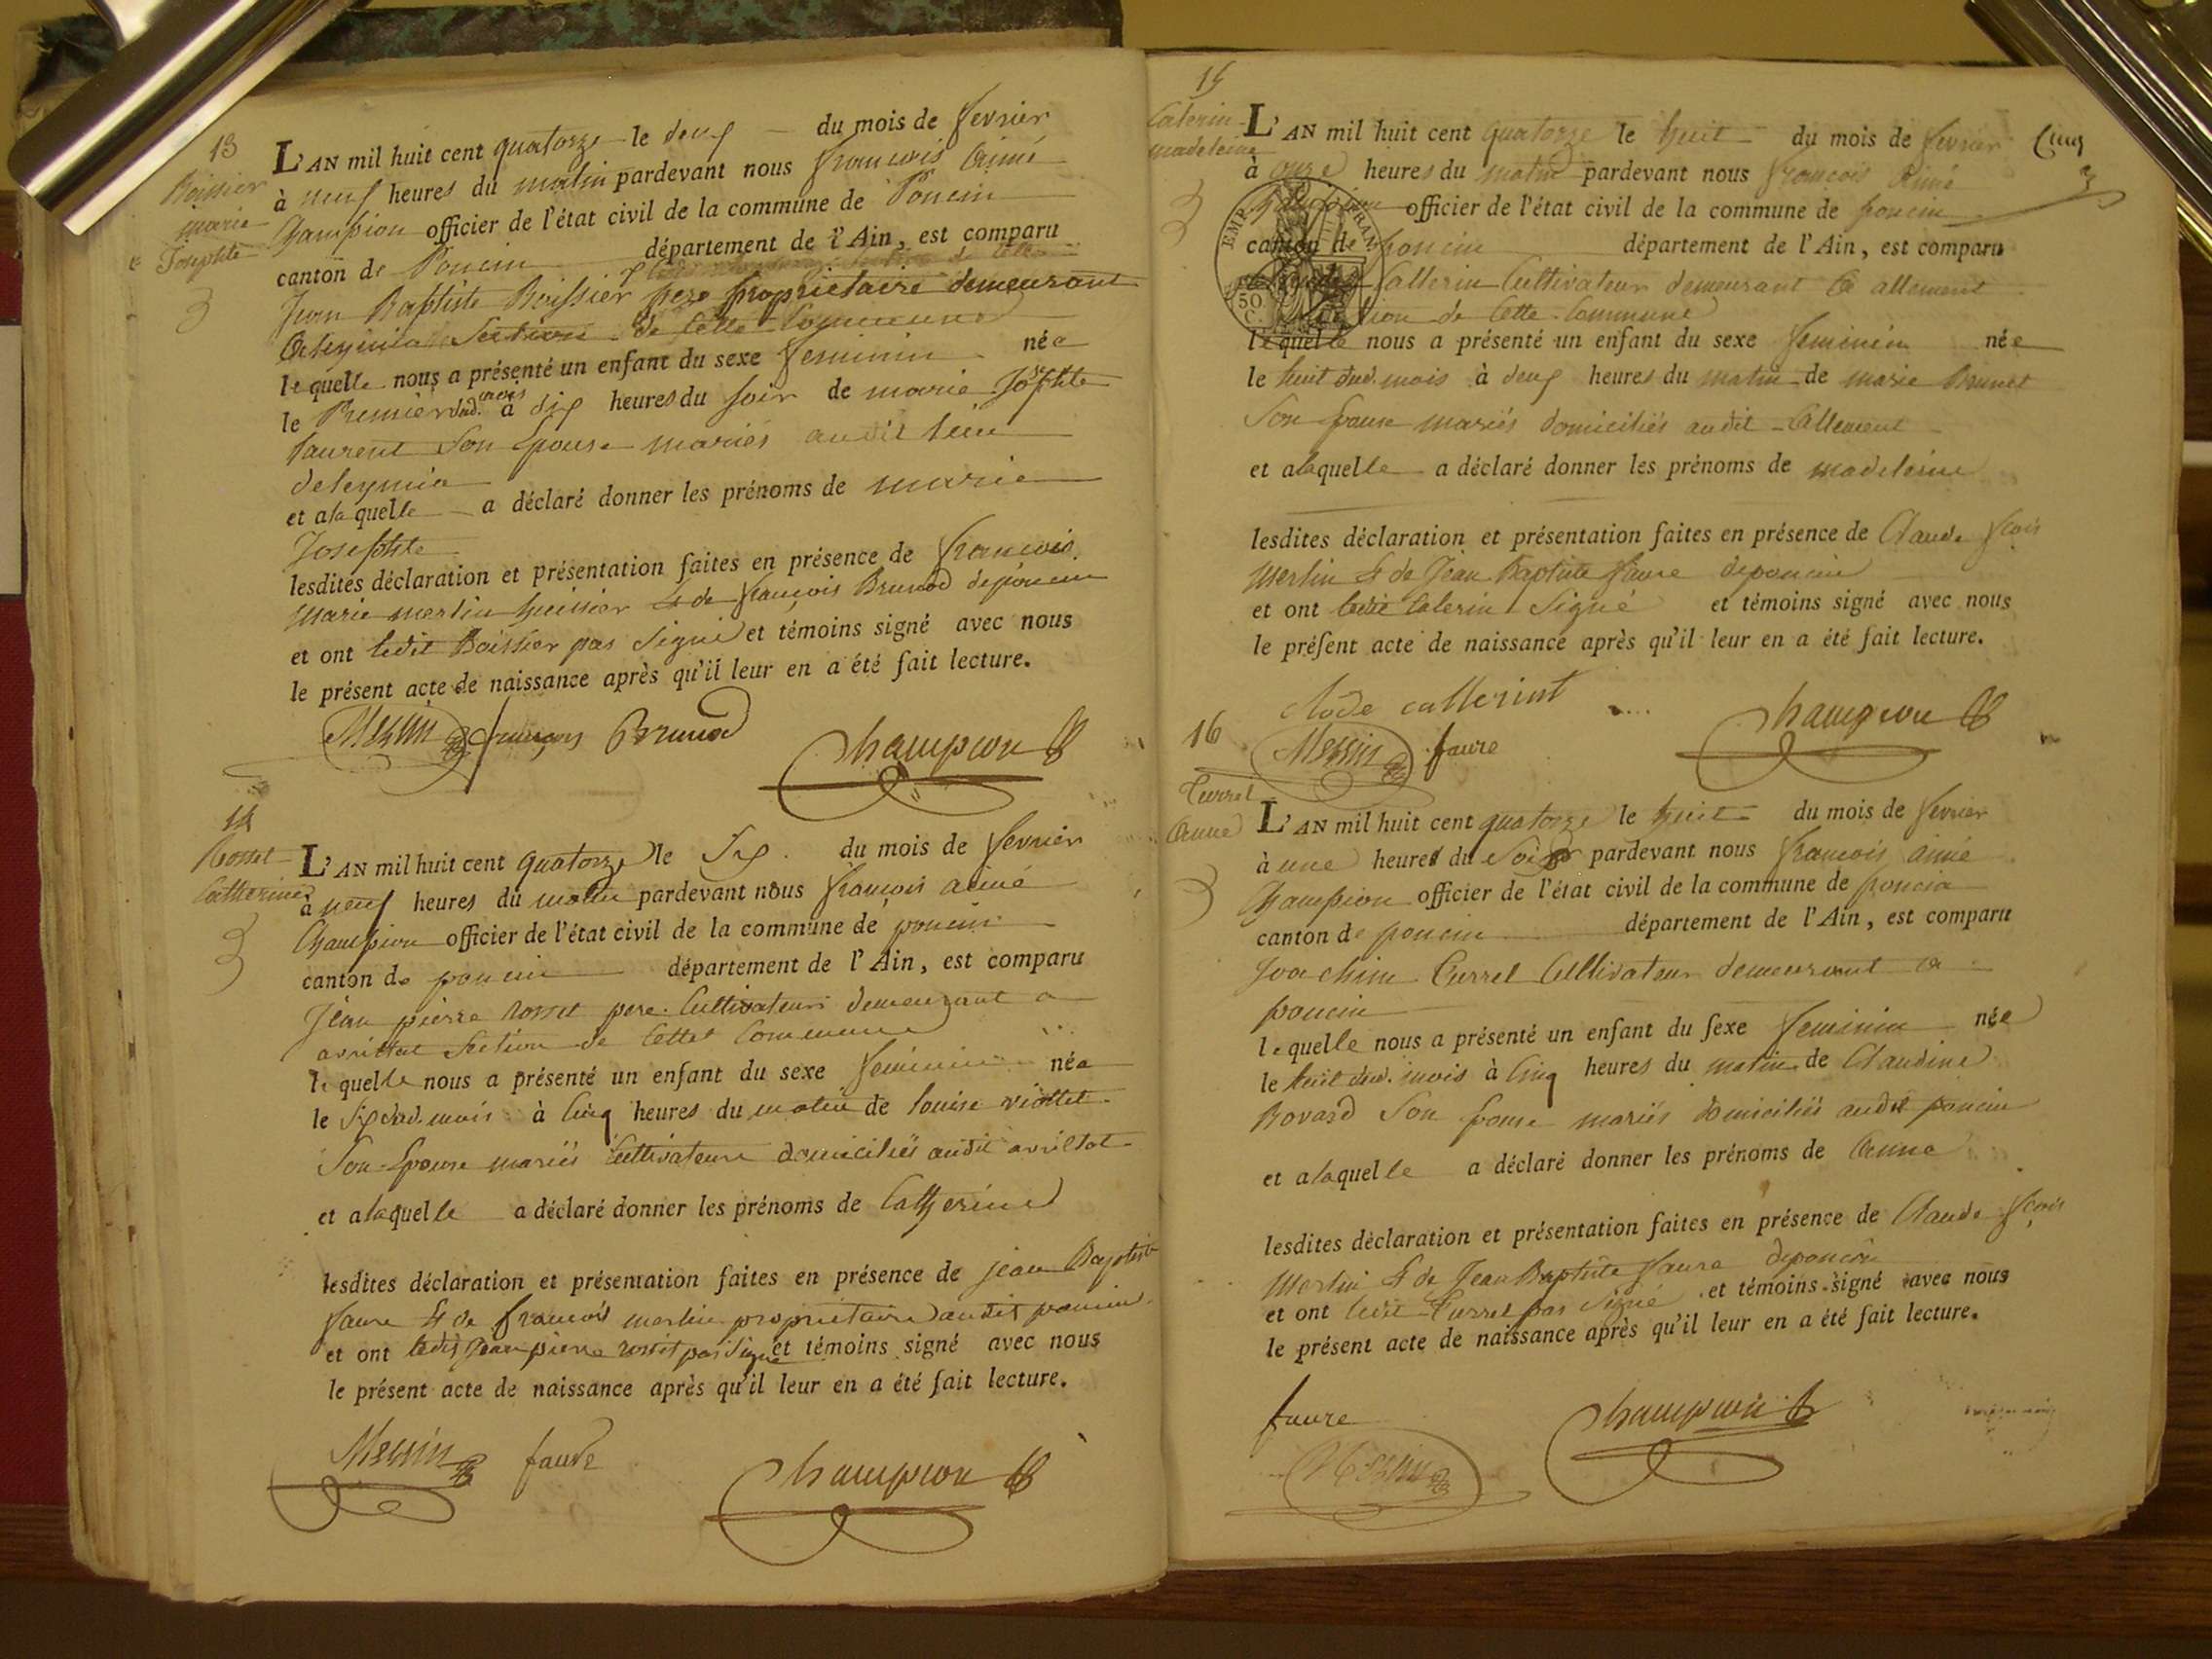 13
Boissier
marie
Josephte
L'AN mil huit cent quatorze le deux du mois de fevrier
à neuf heures du matin pardevant nous françois Aimé
Champion officier de l'état civil de la commune de Poncin
canton de Poncin département de l'Ain, est comparu
Jean Baptiste Boissier pere propriétaire demeurant
section de cette commune
lequelle nous a présenté un enfant du sexe feminin née
le Premier dud. mois à dix heures du soir de marie Josephte
laurent son Epouse mariés audit lieu
deleymia
et alaquelle a déclaré donner les prénoms de marie
Josephte
lesdites déclaration et présentation faites en présence de françois
marie merlin huissier & de françois Brunod deponcin
et ont ledit Boissier pas signé et témoins signé avec nous
le présent acte de naissance après qu'il leur en a été fait lecture.
Merlin françois Brunod
Champion
14
Rosset
Catherine
L'AN mil huit cent quatorze le Six du mois de fevrier
à neuf heures du matin pardevant nous françois aimé
Champion officier de l'état civil de la commune de poncin
canton de poncin département de l'Ain, est comparu
Jean pierre rosset pere Cultivateur demeurant a
section de cette commune
lequelle nous a présenté un enfant du sexe feminin née
le Six dud. mois à cinq heures du matin de louise viollet
Son Epouse mariés Cultivateurs domiciliés audit
et alaquelle a déclaré donner les prénoms de Catherine
lesdites déclaration et présentation faites en présence de jean Baptiste
faure & de françois merlin propriétaire audit poncin
et ont ledit Jean pierre rosset pas signé et témoins signé avec nous
le présent acte de naissance après qu'il leur en a été fait lecture.
Merlin faure
Champion
15
Caterin
madeleine
L'AN mil huit cent quatorze le huit du mois de fevrier
Cinq
à onze heures du matin pardevant nous françois Aimé
Champion officier de l'état civil de la commune de poncin
canton de poncin département de l'Ain, est comparu
Catterin Cultivateur demeurant a allement
section de cette commune
EMP. FRAN.
50
C.
lequelle nous a présenté un enfant du sexe feminin née
le huit dud. mois à deux heures du matin de marie Brunet
Son Epouse mariés domiciliés audit allement
et alaquelle a déclaré donner les prénoms de madeleine
lesdites déclaration et présentation faites en présence de Claude fcois
Merlin & de Jean Baptiste faure deponcin
et ont ledit Caterin Signé et témoins signé avec nous
le présent acte de naissance après qu'il leur en a été fait lecture.
clode catterint
Champion
Merlin faure
16
Curret
Anne
L'AN mil huit cent quatorze le huit du mois de fevrier
à une heures du Soir pardevant nous françois aimé
Champion officier de l'état civil de la commune de poncin
canton de poncin département de l'Ain, est comparu
Joachim Curret Cultivateur demeurant a
poncin
lequelle nous a présenté un enfant du sexe feminin née
le huit dud. mois à cinq heures du matin de Claudine
Bovard Son Epouse mariés domiciliés audit poncin
et alaquelle a déclaré donner les prénoms de Anne
lesdites déclaration et présentation faites en présence de Claude fcois
Merlin & de Jean Baptiste faure deponcin
et ont ledit Curret pas signé et témoins signé avec nous
le présent acte de naissance après qu'il leur en a été fait lecture.
faure
Champion
Merlin